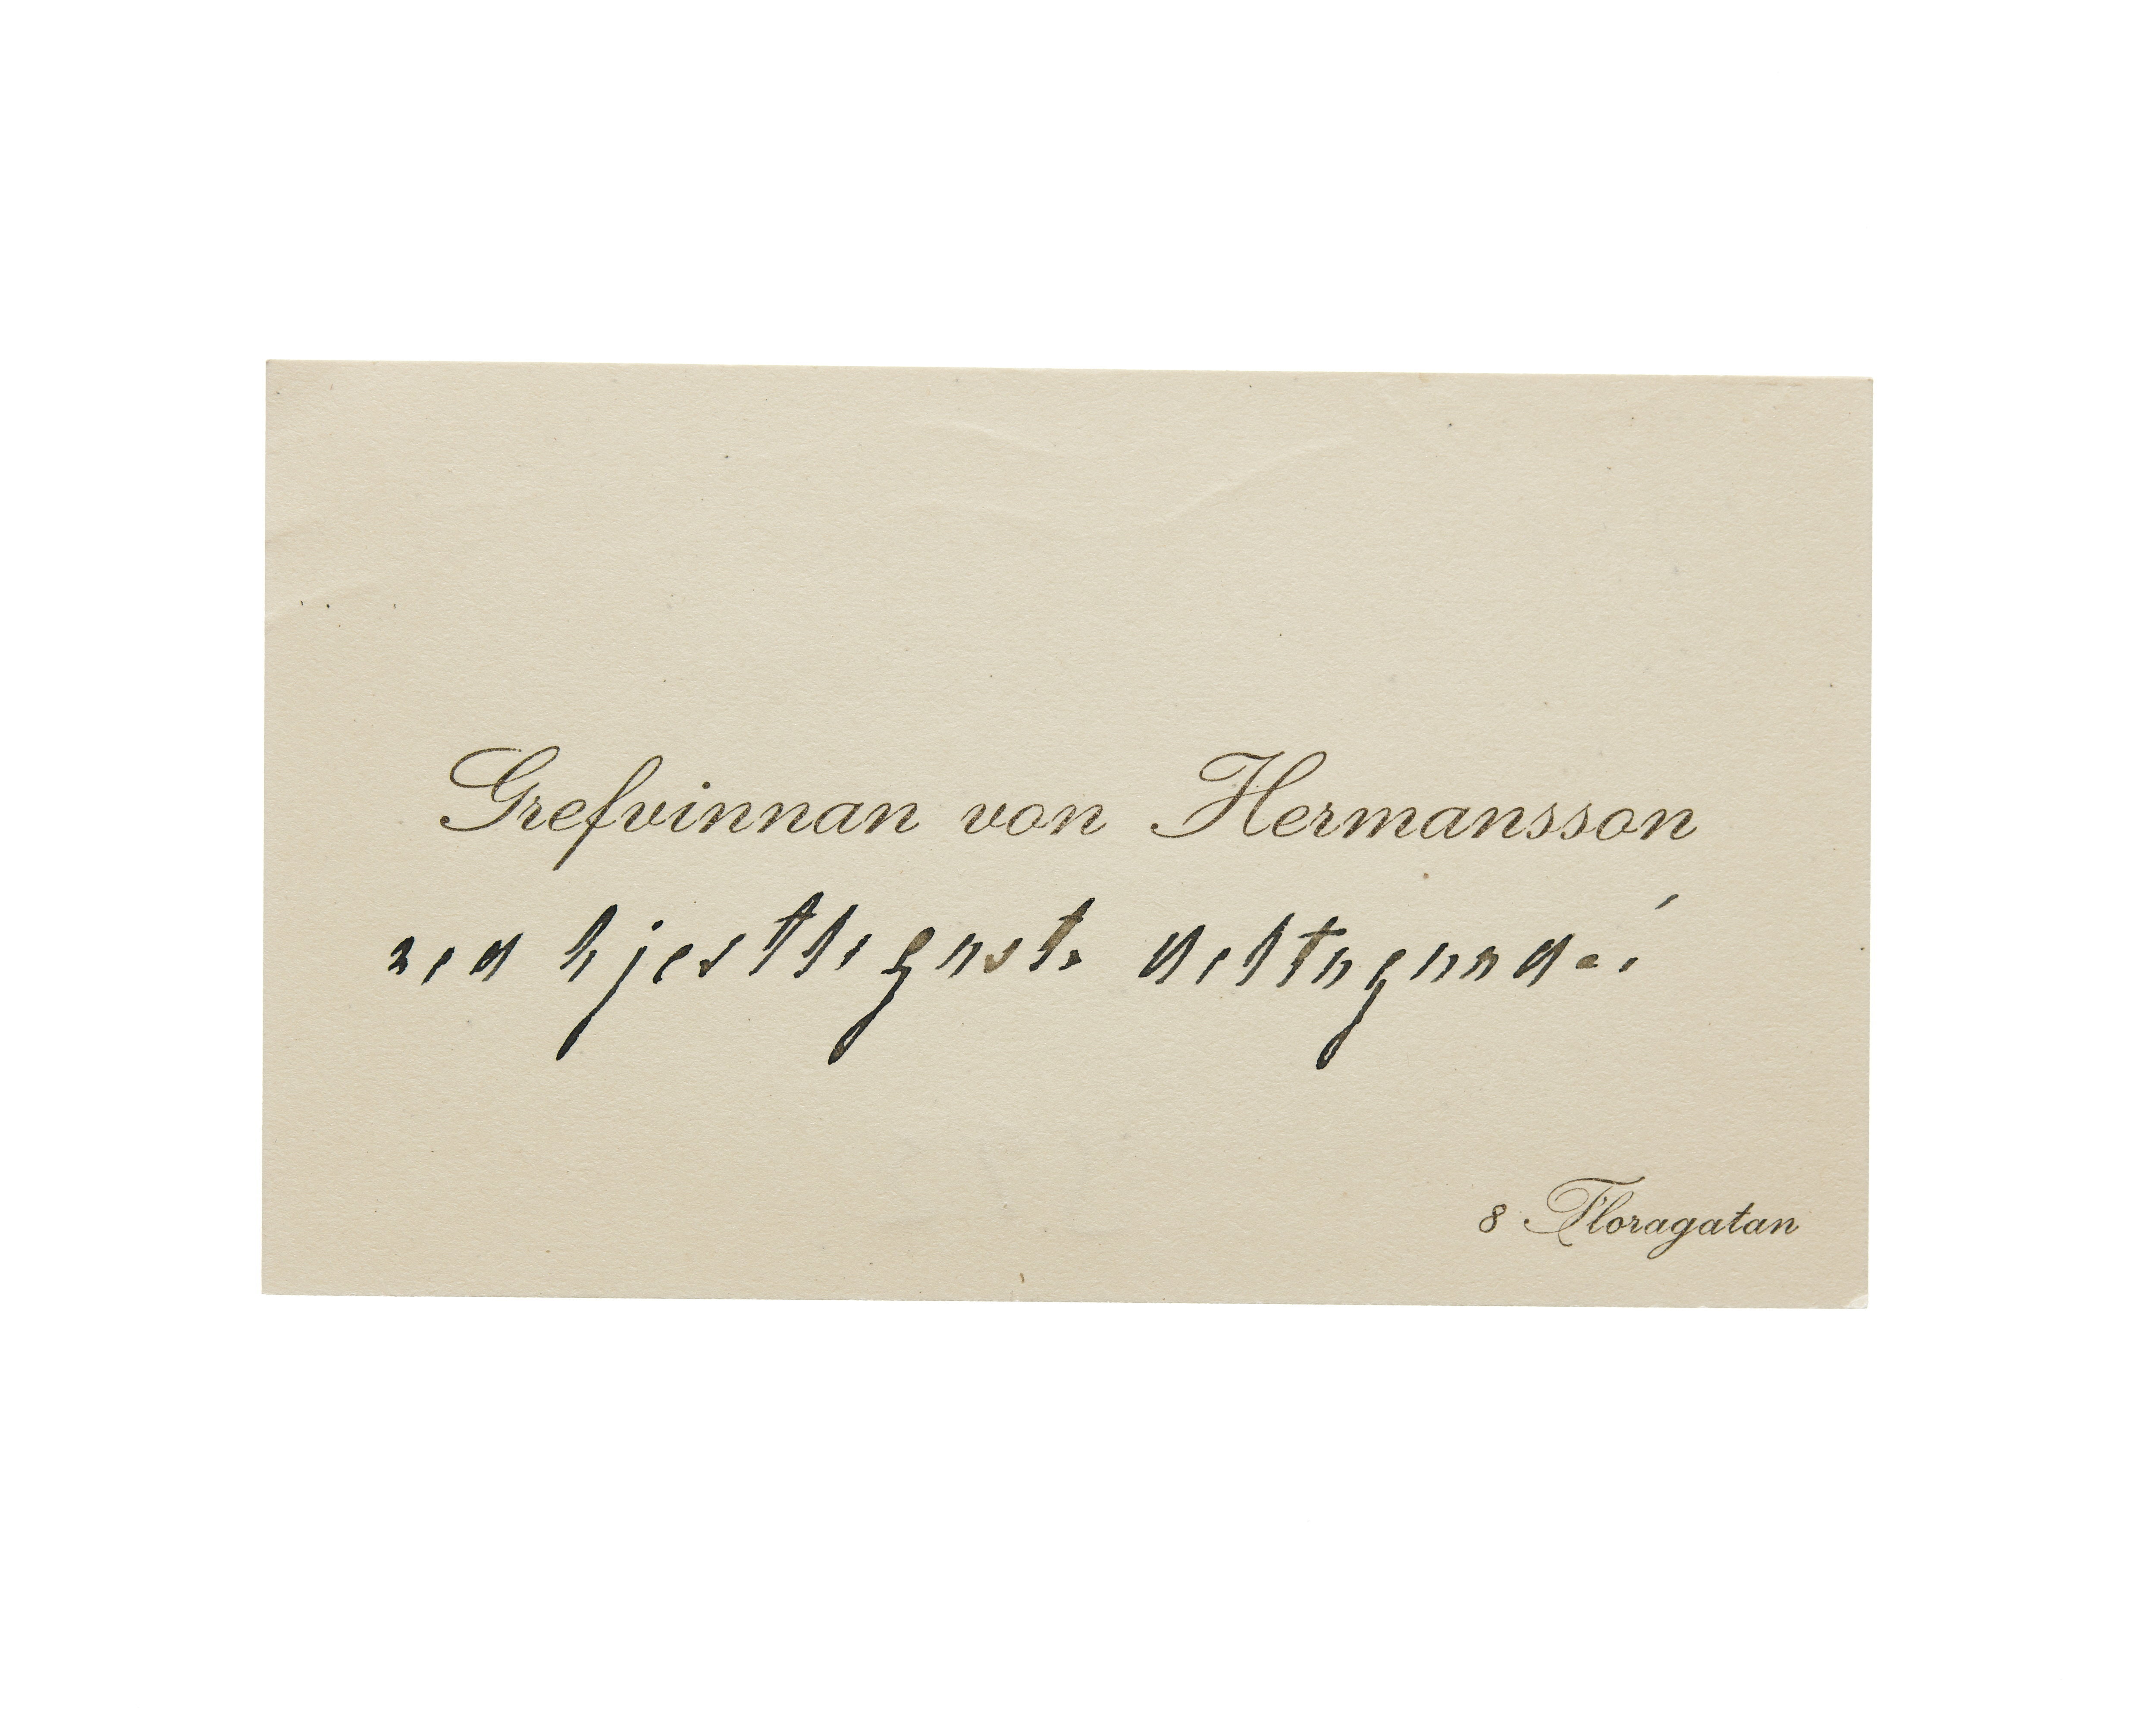 Grefvinnan von Hermansson
med hjertligaste deltagande!
8 Floragatan